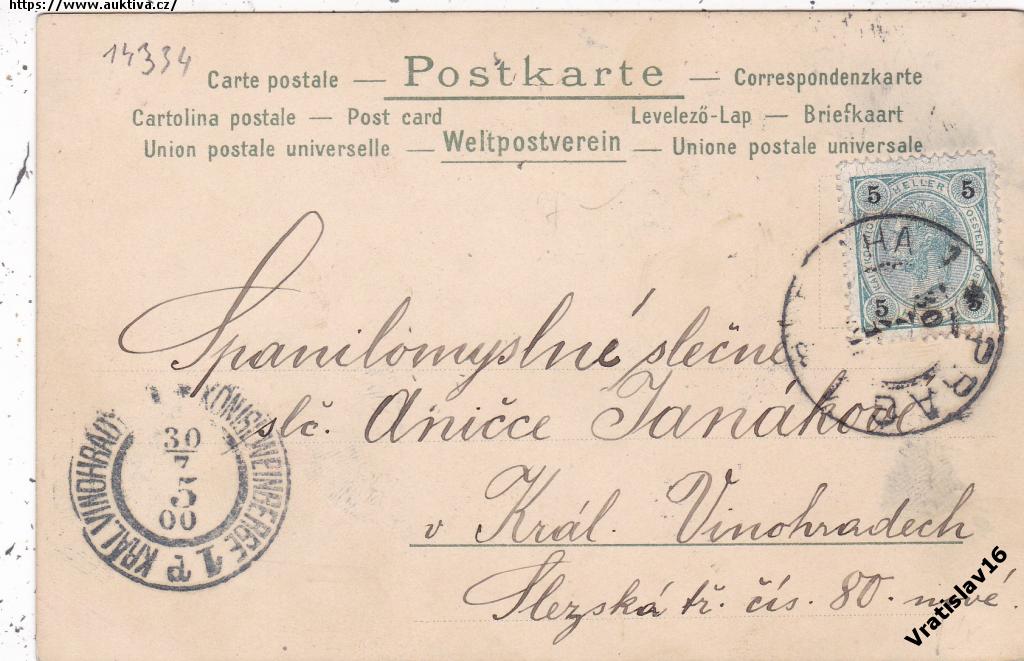 https://www.auktiva.cz/
14334
Carte postale — Postkarte — Correspondenzkarte
Cartolina postale — Post card Levelező-Lap — Briefkaart
Union postale universelle — Weltpostverein — Unione postale universale
5 HELLER 5
5 5
PRAG
HA
Spanilomyslné slečně
slč. Aničce Janákové
v Král. Vinohradech
Slezská tř. čís. 80. nové.
KÖNIGL. WEINBERGE 1 P KRÁL. VINOHRADY
30
7
5
00
Vratislav16